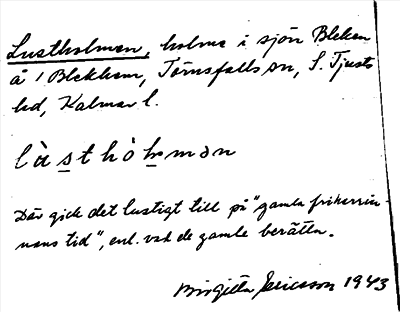 Lustholmen, holme i sjön Bleken
å 1 Blekhem, Törnsfalls sn, S. Tjusts
hd, Kalmar l.
làsthòlmən
Där gick det lustigt till på "gamla friherrin-
nans tid", enl. vad de gamla berätta.
Birgitta Ericsson 1943